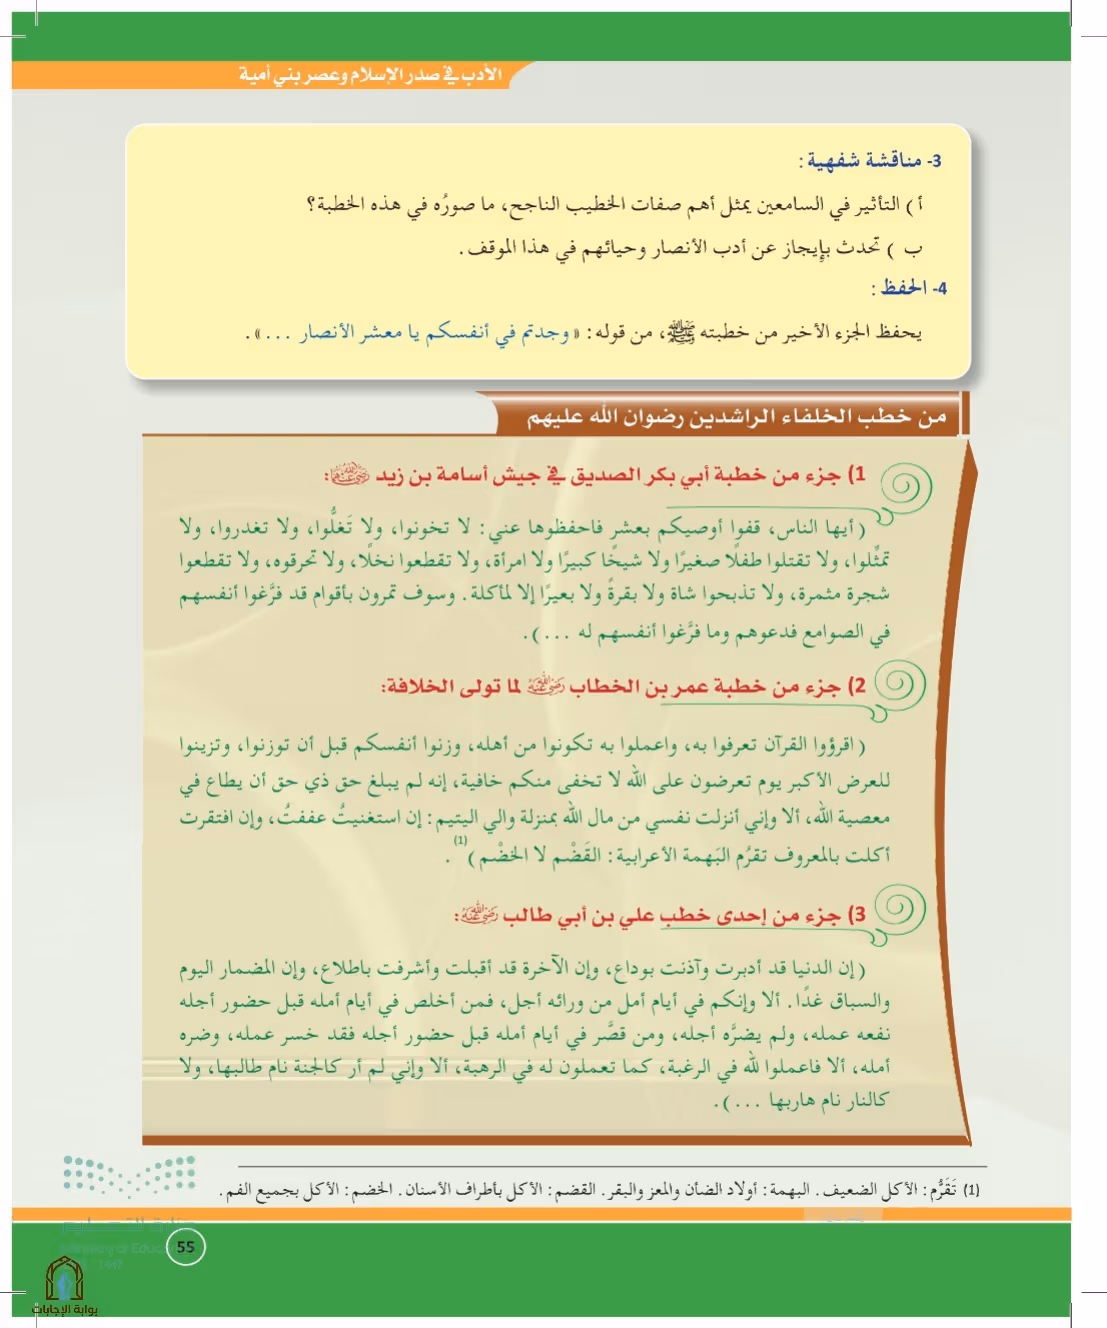 الأدب في صدر الإسلام وعصر بني أمية
3- مناقشة شفهية :
أ ) التأثير في السامعين يمثل أهم صفات الخطيب الناجح، ما صورُه في هذه الخطبة؟
ب ) تحدث بإيجاز عن أدب الأنصار وحيائهم في هذا الموقف .
4- الحفظ :
يحفظ الجزء الأخير من خطبته ﷺ، من قوله : « وجدتم في أنفسكم يا معشر الأنصار ... » .
من خطب الخلفاء الراشدين رضوان الله عليهم
1) جزء من خطبة أبي بكر الصديق في جيش أسامة بن زيد رضي الله عنهما:
( أيها الناس، قفوا أوصيكم بعشر فاحفظوها عني : لا تخونوا، ولا تَغلُّوا، ولا تغدروا، ولا
تمثِّلوا، ولا تقتلوا طفلًا صغيرًا ولا شيخًا كبيرًا ولا امرأة، ولا تقطعوا نخلًا، ولا تحرقوه، ولا تقطعوا
شجرة مثمرة، ولا تذبحوا شاة ولا بقرةً ولا بعيرًا إلا لمأكلة . وسوف تمرون بأقوام قد فرَّغوا أنفسهم
في الصوامع فدعوهم وما فرَّغوا أنفسهم له ... ) .
2) جزء من خطبة عمر بن الخطاب رضي الله عنه لما تولى الخلافة:
( اقرؤوا القرآن تعرفوا به، واعملوا به تكونوا من أهله، وزنوا أنفسكم قبل أن توزنوا، وتزينوا
للعرض الأكبر يوم تعرضون على الله لا تخفى منكم خافية، إنه لم يبلغ حق ذي حق أن يطاع في
معصية الله، ألا وإني أنزلت نفسي من مال الله بمنزلة والي اليتيم : إن استغنيتُ عففتُ، وإن افتقرت
أكلت بالمعروف تقرُم البَهمة الأعرابية : القَضْم لا الخضْم )(1) .
3) جزء من إحدى خطب علي بن أبي طالب رضي الله عنه:
( إن الدنيا قد أدبرت وآذنت بوداع، وإن الآخرة قد أقبلت وأشرفت باطلاع، وإن المضمار اليوم
والسباق غدًا . ألا وإنكم في أيام أمل من ورائه أجل، فمن أخلص في أيام أمله قبل حضور أجله
نفعه عمله، ولم يضرَّه أجله، ومن قصَّر في أيام أمله قبل حضور أجله فقد خسر عمله، وضره
أمله، ألا فاعملوا لله في الرغبة، كما تعملون له في الرهبة، ألا وإني لم أر كالجنة نام طالبها، ولا
كالنار نام هاربها ... ) .
(1) تَقَرُّم : الأكل الضعيف . البهمة : أولاد الضأن والمعز والبقر . القضم : الأكل بأطراف الأسنان . الخضم : الأكل بجميع الفم .
55
بوابة الإجابات